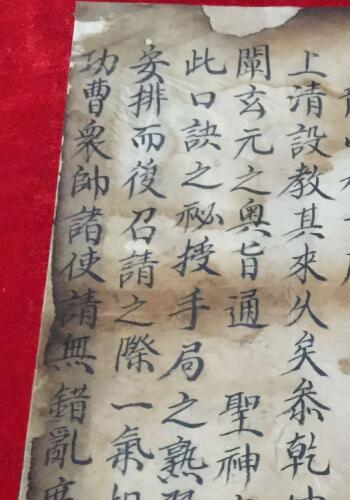 上清設教其來久矣叅乾
闡玄元之奧旨通 聖神
此口訣之祕授手局之熟
安排而後召請之際一氣
功曹衆帥諸使請無錯亂